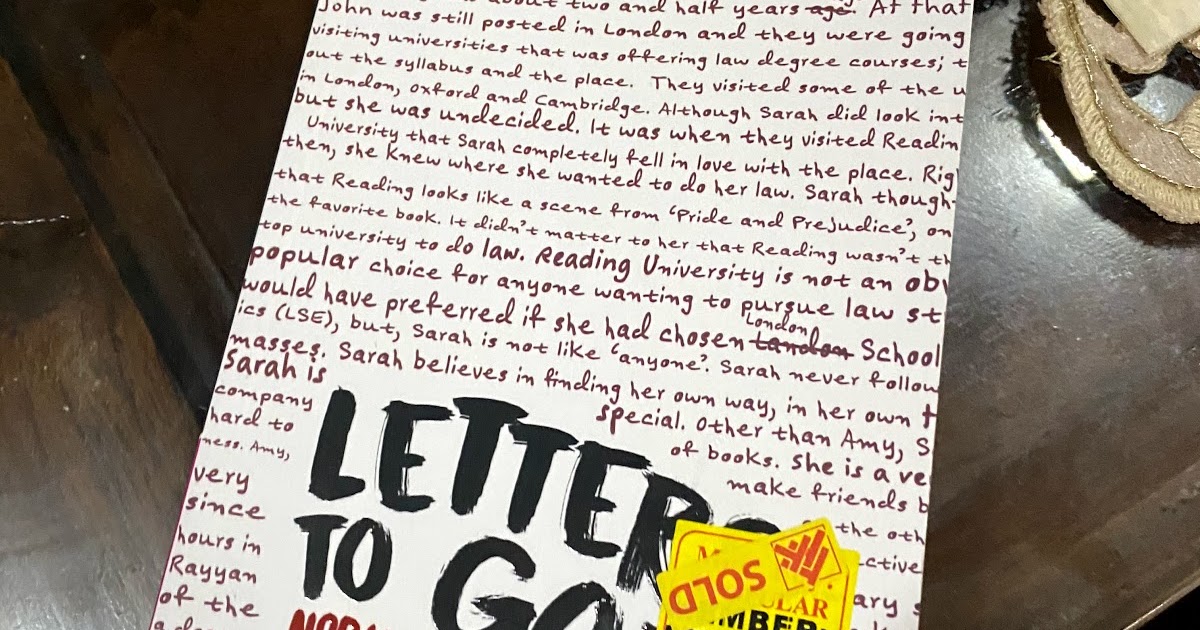 about two and half years age. At that
John was still posted in London and they were going
visiting universities that was offering law degree courses; t
out the syllabus and the place. They visited some of the u
in London, Oxford and Cambridge. Although Sarah did look int
but she was undecided. It was when they visited Readin
University that Sarah completely fell in love with the place. Rig
then, she knew where she wanted to do her law. Sarah though
that Reading looks like a scene from 'Pride and Prejudice', on
the favorite book. It didn't matter to her that Reading wasn't th
top university to do law. Reading University is not an obv
popular choice for anyone wanting to pursue law st
would have preferred if she had chosen London landon School
ics (LSE), but, Sarah is not like 'anyone'. Sarah never follow
masses. Sarah believes in finding her own way, in her own t
Sarah is special. Other than Amy, S
company of books. She is a ve
hard to make friends b
ness. Amy, the oth
very ctive
since ary s
hours in
Rayyan
of the
LETTERS
TO GO
SOLD
ULAR
MBER